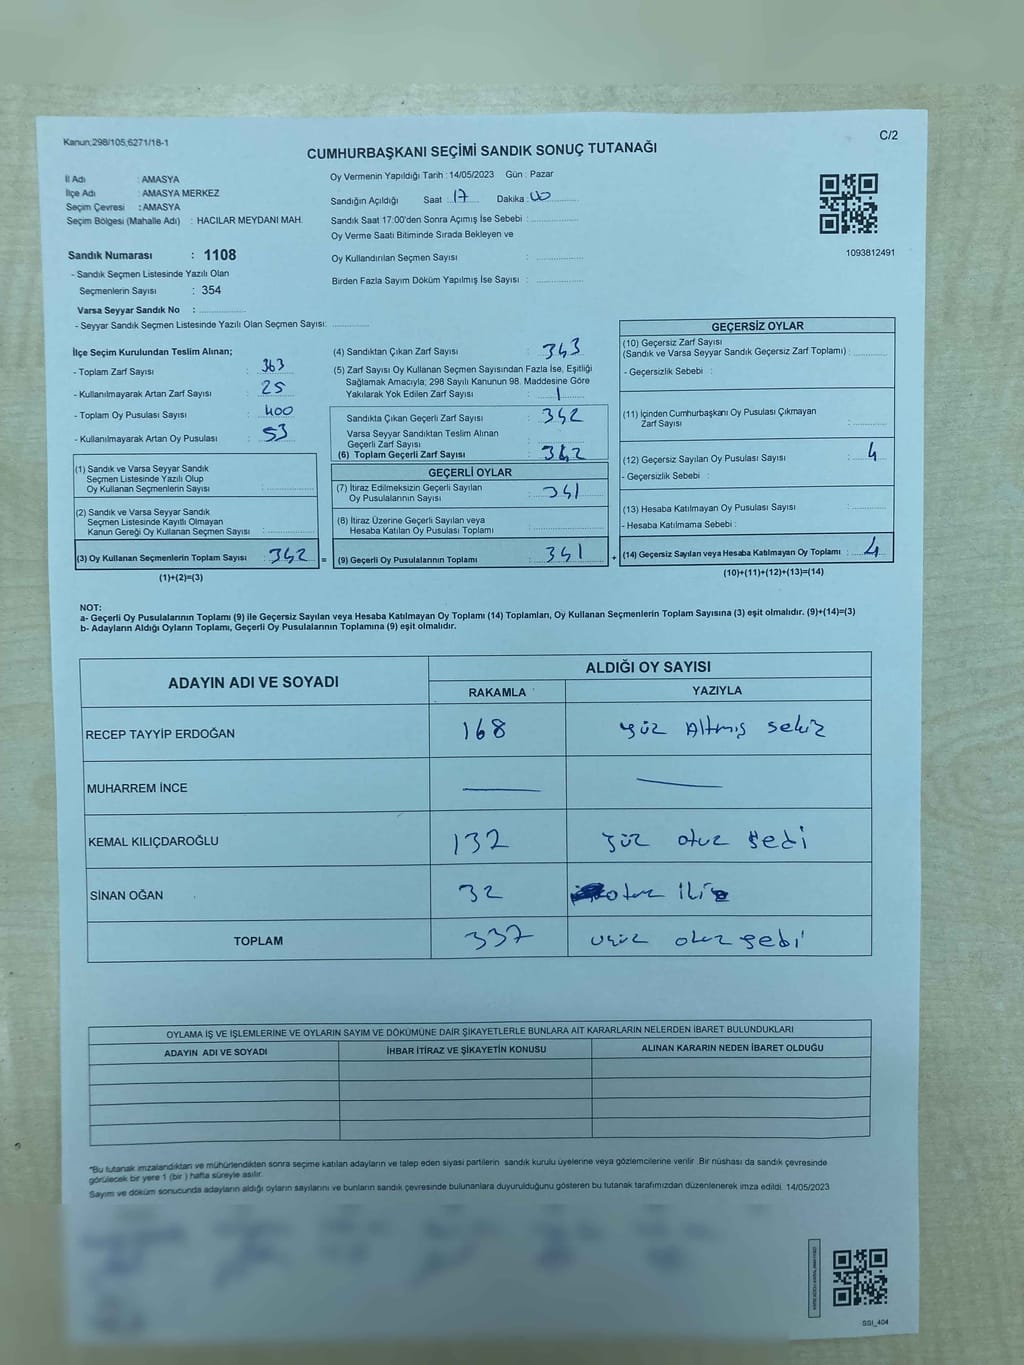 Kanun;298/105;6271/18-1
C/2
CUMHURBAŞKANI SEÇİMİ SANDIK SONUÇ TUTANAĞI
İl Adı : AMASYA
İlçe Adı : AMASYA MERKEZ
Seçim Çevresi : AMASYA
Seçim Bölgesi (Mahalle Adı) : HACILAR MEYDANI MAH.
Oy Vermenin Yapıldığı Tarih : 14/05/2023 Gün : Pazar
Sandığın Açıldığı Saat 17 Dakika 00
Sandık Saat 17:00'den Sonra Açımış İse Sebebi :
Oy Verme Saati Bitiminde Sırada Bekleyen ve
Oy Kullandırılan Seçmen Sayısı :
Birden Fazla Sayım Döküm Yapılmış İse Sayısı :
1093812491
Sandık Numarası : 1108
- Sandık Seçmen Listesinde Yazılı Olan
Seçmenlerin Sayısı : 354
Varsa Seyyar Sandık No :
- Seyyar Sandık Seçmen Listesinde Yazılı Olan Seçmen Sayısı:
İlçe Seçim Kurulundan Teslim Alınan;
- Toplam Zarf Sayısı : 363
- Kullanılmayarak Artan Zarf Sayısı : 25
- Toplam Oy Pusulası Sayısı : 400
- Kullanılmayarak Artan Oy Pusulası : 53
(1) Sandık ve Varsa Seyyar Sandık
Seçmen Listesinde Yazılı Olup
Oy Kullanan Seçmenlerin Sayısı :
(2) Sandık ve Varsa Seyyar Sandık
Seçmen Listesinde Kayıtlı Olmayan
Kanun Gereği Oy Kullanan Seçmen Sayısı :
(3) Oy Kullanan Seçmenlerin Toplam Sayısı : 342 =
(1)+(2)=(3)
(4) Sandıktan Çıkan Zarf Sayısı : 343
(5) Zarf Sayısı Oy Kullanan Seçmen Sayısından Fazla İse, Eşitliği
Sağlamak Amacıyla; 298 Sayılı Kanunun 98. Maddesine Göre
Yakılarak Yok Edilen Zarf Sayısı : 1
Sandıkta Çıkan Geçerli Zarf Sayısı : 342
Varsa Seyyar Sandıktan Teslim Alınan
Geçerli Zarf Sayısı :
(6) Toplam Geçerli Zarf Sayısı : 342
GEÇERLİ OYLAR
(7) İtiraz Edilmeksizin Geçerli Sayılan
Oy Pusulalarının Sayısı : 341
(8) İtiraz Üzerine Geçerli Sayılan veya
Hesaba Katılan Oy Pusulası Toplamı :
(9) Geçerli Oy Pusulalarının Toplamı : 341 +
GEÇERSİZ OYLAR
(10) Geçersiz Zarf Sayısı
(Sandık ve Varsa Seyyar Sandık Geçersiz Zarf Toplamı) :
- Geçersizlik Sebebi :
(11) İçinden Cumhurbaşkanı Oy Pusulası Çıkmayan
Zarf Sayısı :
(12) Geçersiz Sayılan Oy Pusulası Sayısı : 4
- Geçersizlik Sebebi :
(13) Hesaba Katılmayan Oy Pusulası Sayısı :
- Hesaba Katılmama Sebebi :
(14) Geçersiz Sayılan veya Hesaba Katılmayan Oy Toplamı : 4
(10)+(11)+(12)+(13)=(14)
NOT:
a- Geçerli Oy Pusulalarının Toplamı (9) ile Geçersiz Sayılan veya Hesaba Katılmayan Oy Toplamı (14) Toplamları, Oy Kullanan Seçmenlerin Toplam Sayısına (3) eşit olmalıdır. (9)+(14)=(3)
b- Adayların Aldığı Oyların Toplamı, Geçerli Oy Pusulalarının Toplamına (9) eşit olmalıdır.
ADAYIN ADI VE SOYADI ALDIĞI OY SAYISI
RAKAMLA YAZIYLA
RECEP TAYYİP ERDOĞAN 168 yüz Altmış sekiz
MUHARREM İNCE
KEMAL KILIÇDAROĞLU 132 yüz otuz yedi
SİNAN OĞAN 32 otuz iki
TOPLAM 337 üçyüz otuz yedi
OYLAMA İŞ VE İŞLEMLERİNE VE OYLARIN SAYIM VE DÖKÜMÜNE DAİR ŞİKAYETLERLE BUNLARA AİT KARARLARIN NELERDEN İBARET BULUNDUKLARI
ADAYIN ADI VE SOYADI İHBAR İTİRAZ VE ŞİKAYETİN KONUSU ALINAN KARARIN NEDEN İBARET OLDUĞU
*Bu tutanak imzalandıktan ve mühürlendikten sonra seçime katılan adayların ve talep eden siyasi partilerin sandık kurulu üyelerine veya gözlemcilerine verilir. Bir nüshası da sandık çevresinde
görülecek bir yere 1 (bir ) hafta süreyle asılır.
Sayım ve döküm sonucunda adayların aldığı oyların sayılarını ve bunların sandık çevresinde bulunanlara duyurulduğunu gösteren bu tutanak tarafımızdan düzenlenerek imza edildi. 14/05/2023
SSI_404